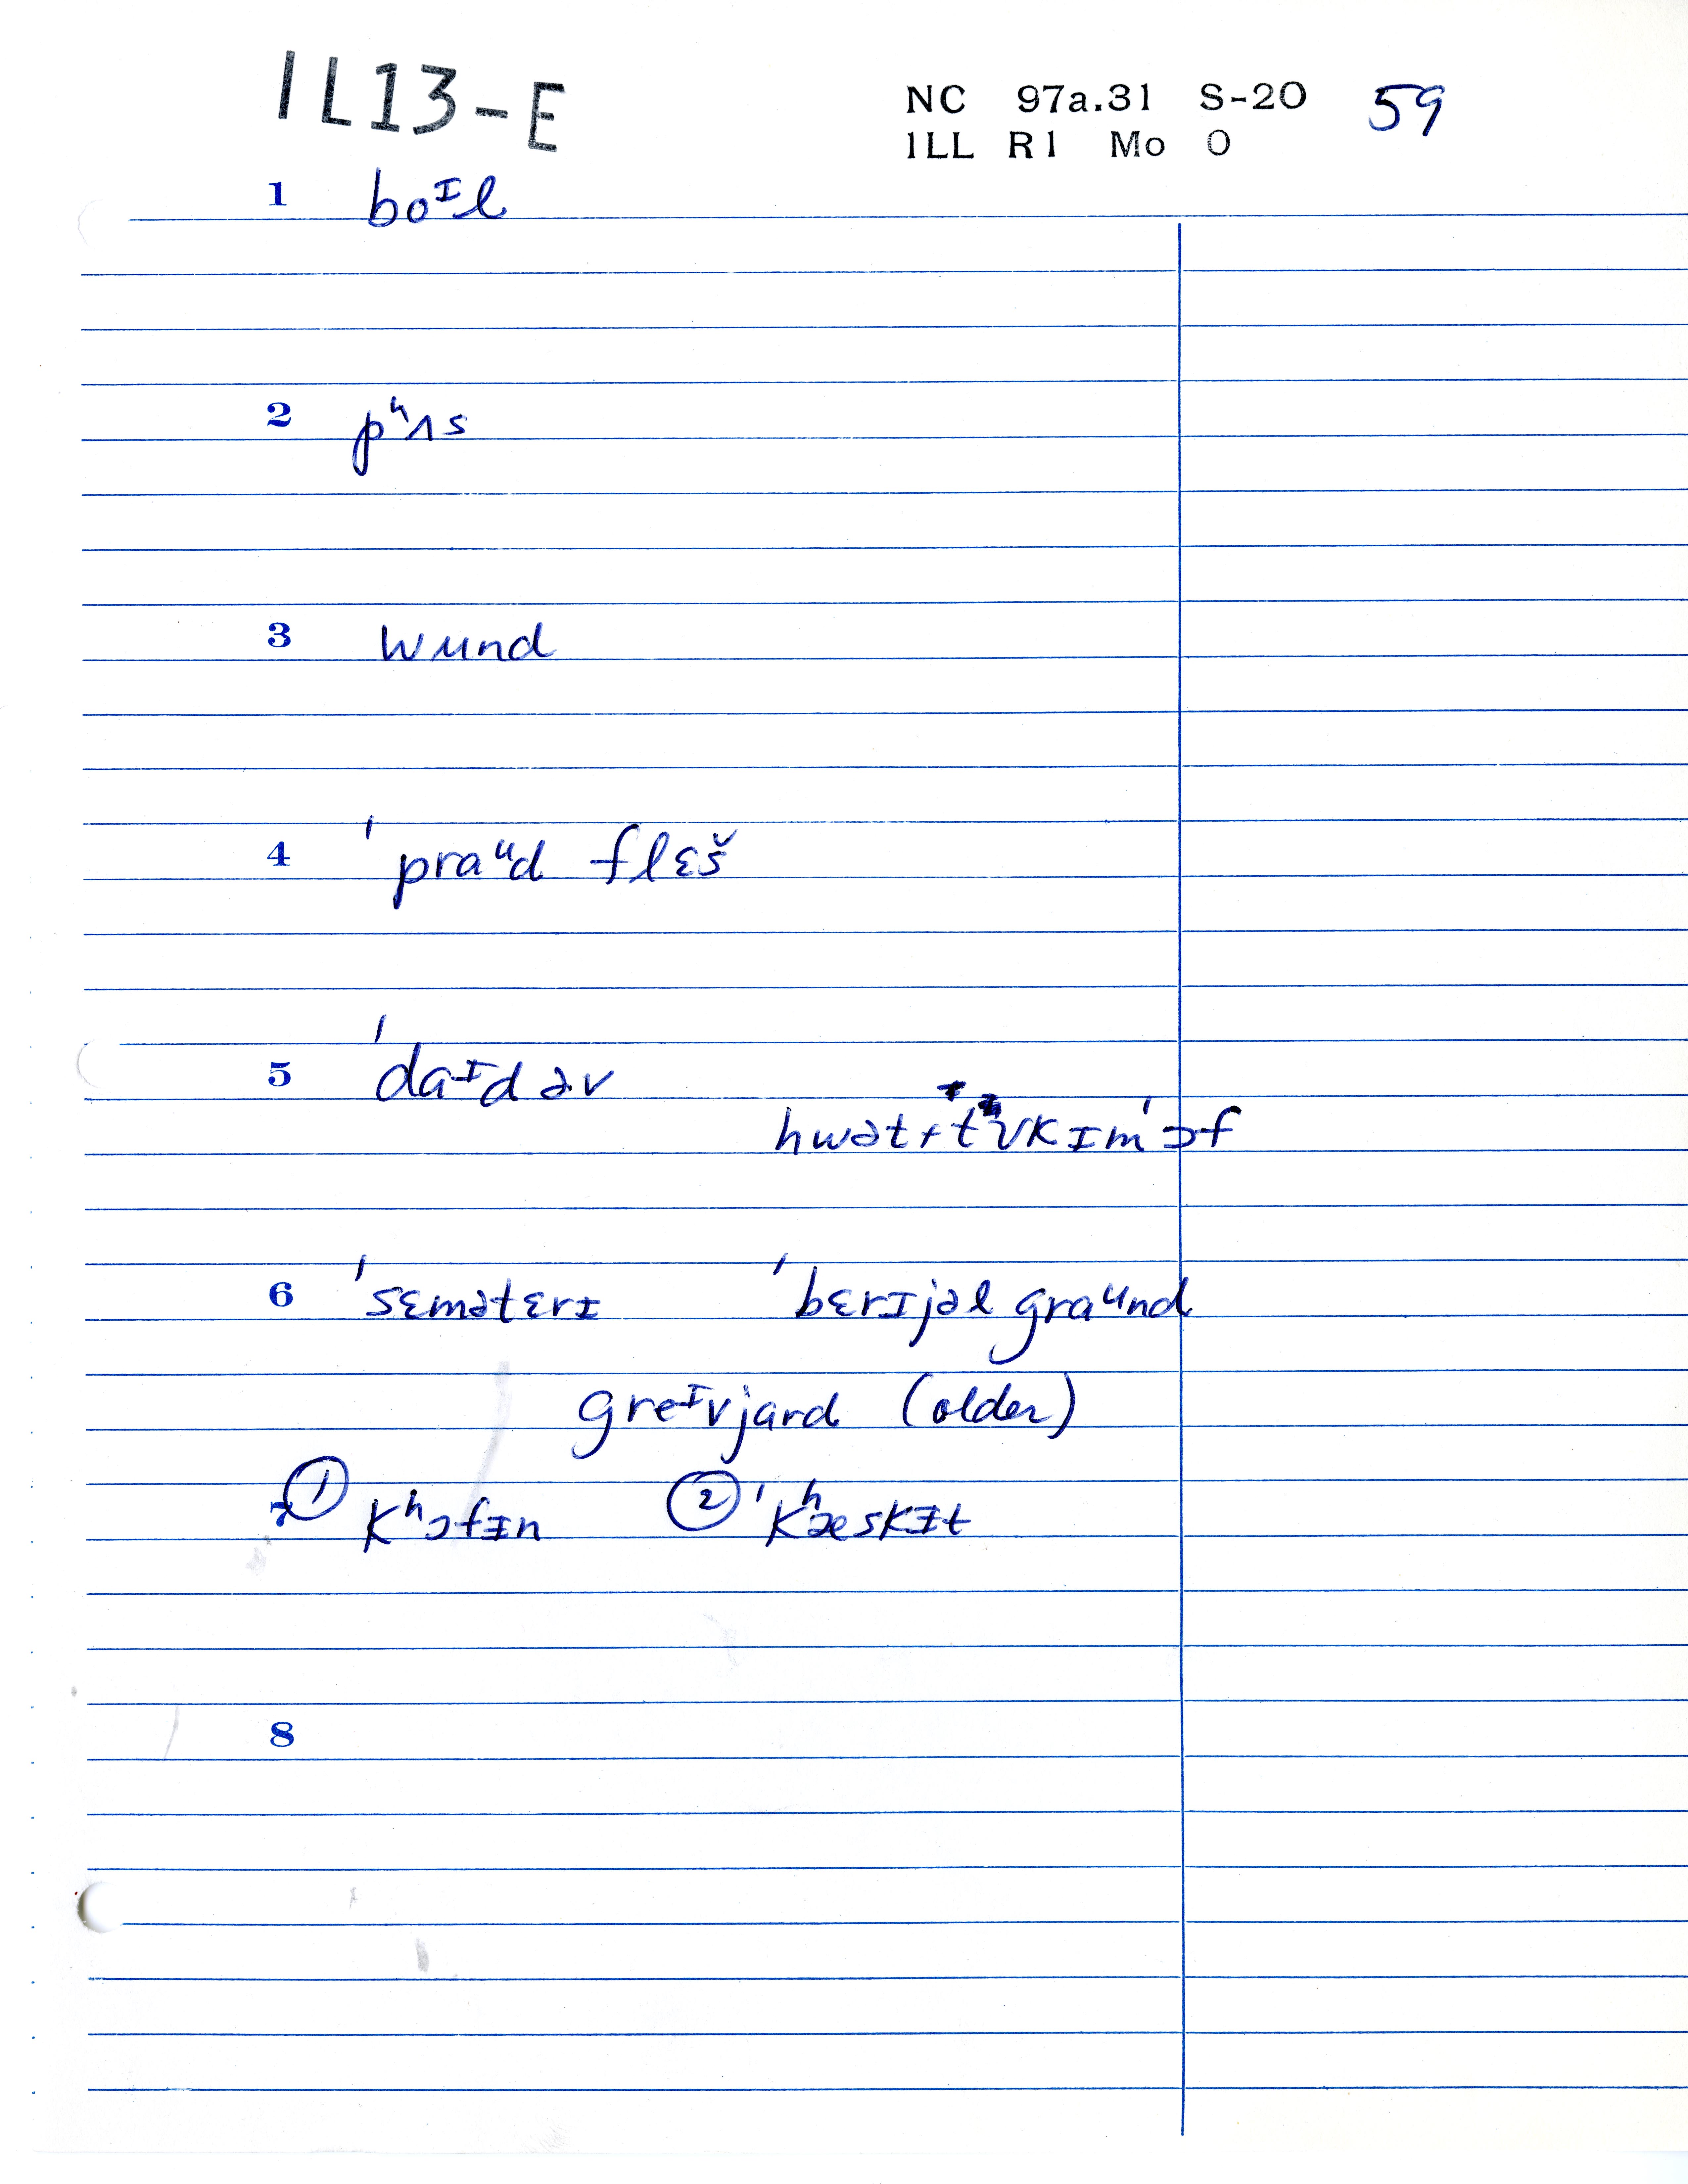 IL13-E
NC 97a.31 S-20 59
ILL R1 Mo O
1 boᴵl
2 pʰʌs
3 wund
4 ˈpraᵘd flɛš
5 ˈdaᴵd əv
ɪmˈɔf
6 ˈsɛmətɛrɪ ˈbɛrɪjəl graᵘnd
greᴵvjard (older)
7 ① kʰɔfɪn ② ˈkʰæskɪt
8